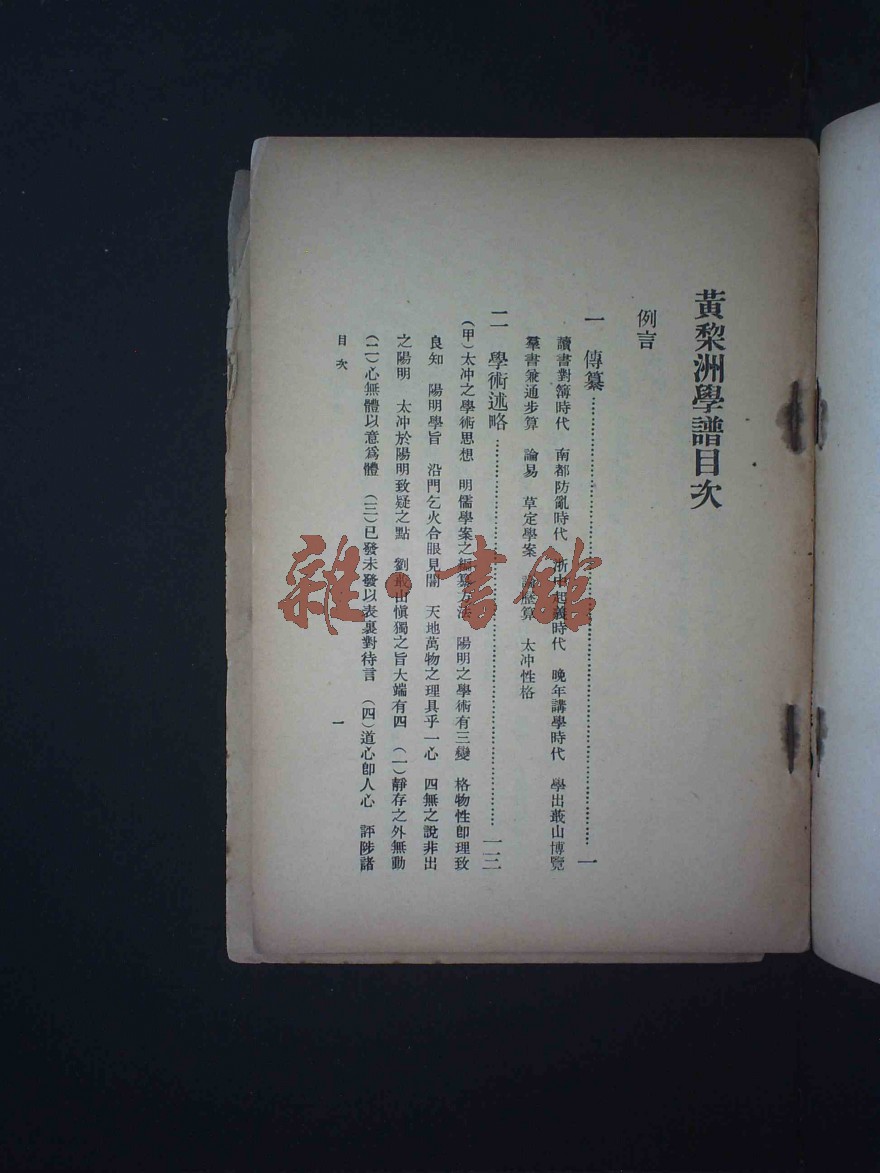 黃黎洲學譜目次
例言
一 傳纂…………一
讀書對簿時代 南都防亂時代 浙中起義時代 晚年講學時代 學出蕺山博覽
羣書兼通步算 論易 草定學案 論歷算 太冲性格
二 學術述略…………一三
(甲)太冲之學術思想 明儒學案之編纂方法 陽明之學術有三變 格物性卽理致
良知 陽明學旨 沿門乞火合眼見闇 天地萬物之理具乎一心 四無之說非出
之陽明 太冲於陽明致疑之點 劉蕺山愼獨之旨大端有四 (一)靜存之外無動
(二)心無體以意爲體 (三)已發未發以表裏對待言 (四)道心卽人心 評陟諸
目次 一
雜·書館